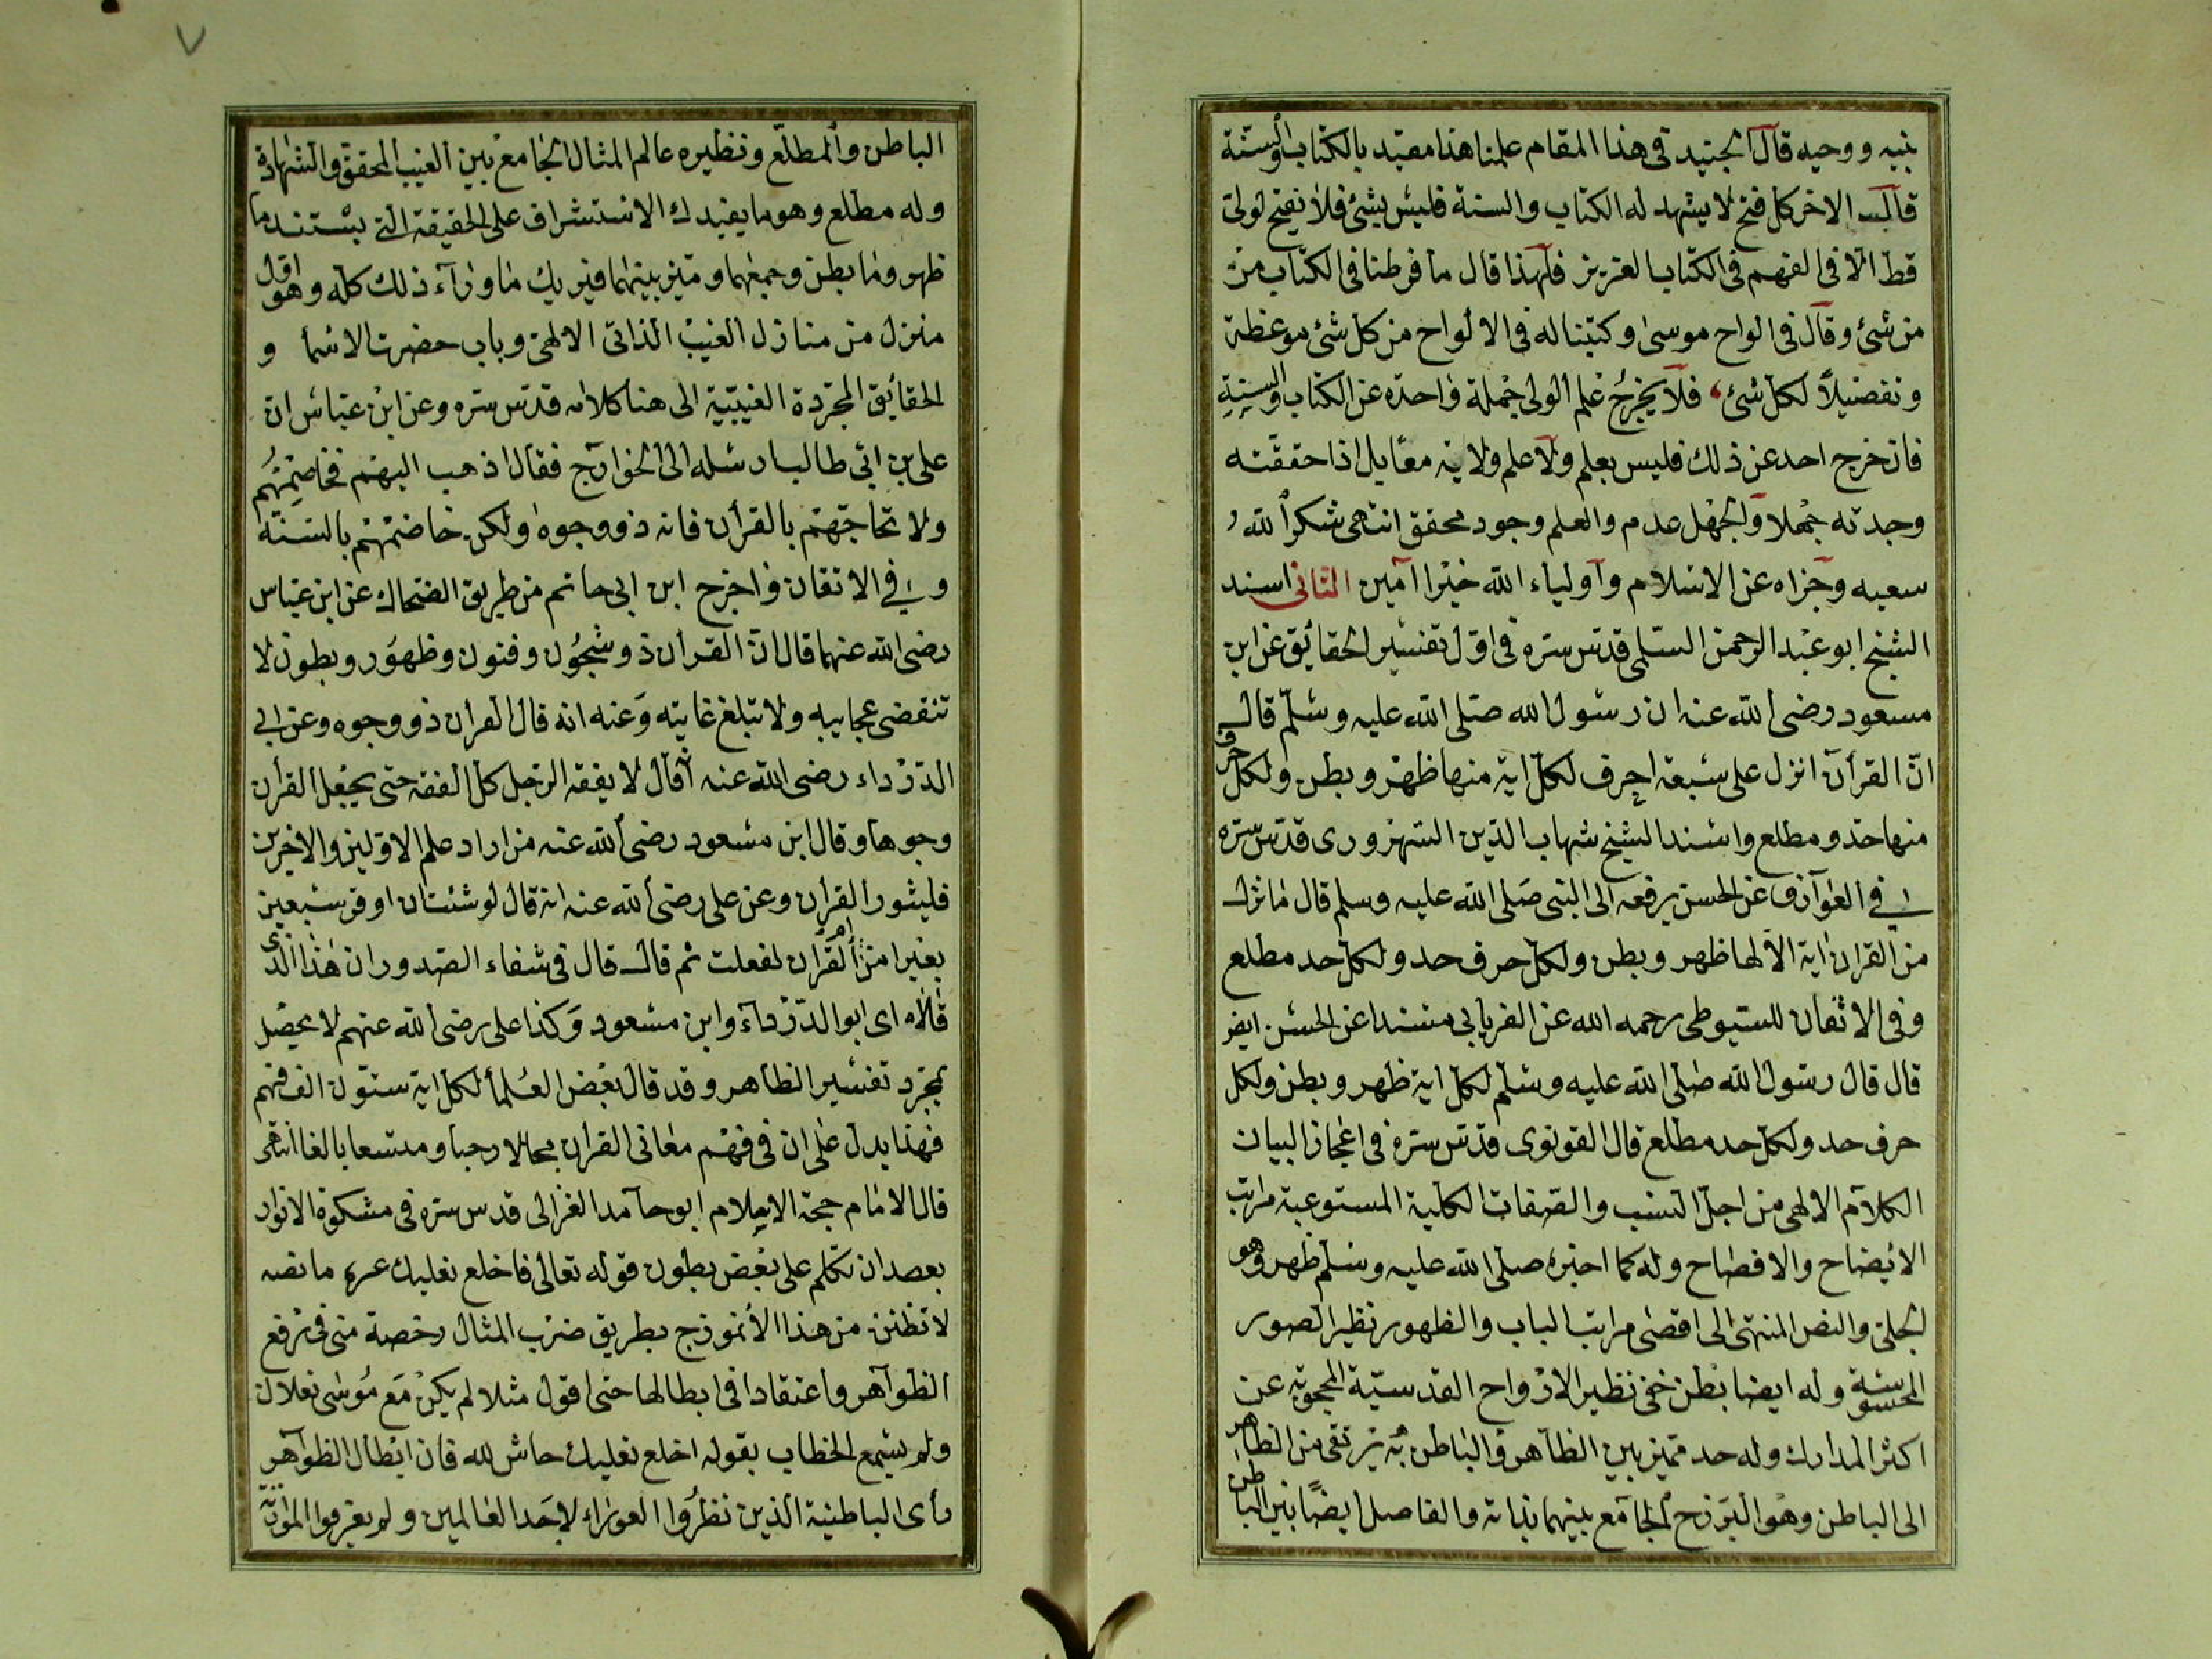 نبيه ووحيه قال الجنيد في هذا المقام علمنا هذا مقيد بالكتاب والسنة
قال الاخر كل فتح لا يشهد له الكتاب والسنة فليس بشئ فلا نفتح لولي
قط الا في الفهم في الكتاب العزيز فلهذا قال ما فرطنا في الكتاب من
من شئ وقال في الواح موسى وكتبنا له في الالواح من كل شئ موعظة
وتفصيلا لكل شئ فلا يخرج علم الولي جملة واحدة عن الكتاب والسنة
فان خرج احد عن ذلك فليس بعلم ولا علم ولاية معا بل اذا حققته
وجدته جهلا والجهل عدم والعلم وجود محقق انتهى شكر الله
سعيه وجزاه عن الاسلام واولياء الله خيرا امين الثاني اسند
الشيخ ابو عبد الرحمن السلمي قدس سره في اول تفسير الحقايق عن ابن
مسعود رضي الله عنه ان رسول الله صلى الله عليه وسلم قال
ان القرآن انزل على سبعة احرف لكل اية منها ظهر وبطن ولكل حرف
منها حد ومطلع واسند الشيخ شهاب الدين السهروردى قدس سره
في العوارف عن الحسن يرفعه الى النبي صلى الله عليه وسلم قال ما نزل
من القران اية الا لها ظهر وبطن ولكل حرف حد ولكل حد مطلع
وفي الاتقان للسيوطي رحمه الله عن الفريابي مسندا عن الحسن ايضر
قال قال رسول الله صلى الله عليه وسلم لكل اية ظهر وبطن ولكل
حرف حد ولكل حد مطلع قال القونوى قدس سره في اعجاز البيان
الكلام الالهي من اجل النسب والصفات الكلية المستوعبة مراتب
الايضاح والافصاح وله كما اخبره صلى الله عليه وسلم ظهر وهو
الجلي والنص المنتهي الى اقصى مراتب الباب والظهور نظير الصور
المحسوسة وله ايضا بطن خفي نظير الارواح القدسية المحجوبة عن
اكثر المدارك وله حد مميز بين الظاهر والباطن به يرتقى من الظاهر
الى الباطن وهو البرزخ الجامع بينهما بذاته والفاصل ايضا بين الباطن
الباطن والمطلع ونظيره عالم المثال الجامع بين الغيب المحقق والشهادة
وله مطلع وهو ما يفيدك الاستشراف على الحقيقة التي يستند ما
ظهر وما بطن وجمعهما وميز بينهما فيريك ما وراء ذلك كله وهو اول
منزل من منازل الغيب الذاتي الالهي وباب حضرت الاسما و
الحقائق المجردة الغيبية الى هنا كلامه قدس سره وعن ابن عباس ان
علي بن ابي طالب ارسله الى الخوارج فقال اذهب اليهم فخاصمهم
ولا تحاجهم بالقرأن فانه ذو وجوه ولكن خاصمهم بالسنة
وفي الاتقان واخرج ابن ابي حاتم من طريق الضحاك عن ابن عباس
رضي الله عنهما قال ان القرأن ذو شجون وفنون وظهور وبطون لا
تنقضي عجايبه ولا تبلغ غايته وعنه انه قال القران ذو وجوه وعن ابي
الدرداء رضي الله عنه قال لا يفقه الرجل كل الفقه حتى يجعل القرأن
وجوها وقال ابن مسعود رضي الله عنه من اراد علم الاولين والاخرين
فليثور القرأن وعن علي رضي الله عنه انه قال لو شئت ان اوقر سبعين
بعيرا من ام القرآن لفعلت ثم قال قال في شفاء الصدور ان هذا الذى
قالاه اى ابو الدرداء وابن مسعود وكذا علي رضي الله عنهم لا يحصل
بمجرد تفسير الظاهر وقد قال بعض العلما لكل اية ستون الف فهم
فهذا يدل على ان في فهم معاني القران مجالا رحبا ومتسعا بالغا انتهى
قال الامام حجة الاسلام ابو حامد الغزالي قدس سره في مشكوة الانوار
بعد ان تكلم على بعض بطون قوله تعالى فاخلع نعليك ما نصه
لا تظنن من هذا الانموذج بطريق ضرب المثال رخصة مني في رفع
الظواهر واعتقادا في ابطالها حتى اقول مثلا لم يكن مع موسى نعلان
ولم يسمع الخطاب بقوله اخلع نعليك حاش لله فان ابطال الظواهر
رأى الباطنية الذين نظروا العوراء لاحد العالمين ولم يعرفوا الموازنة